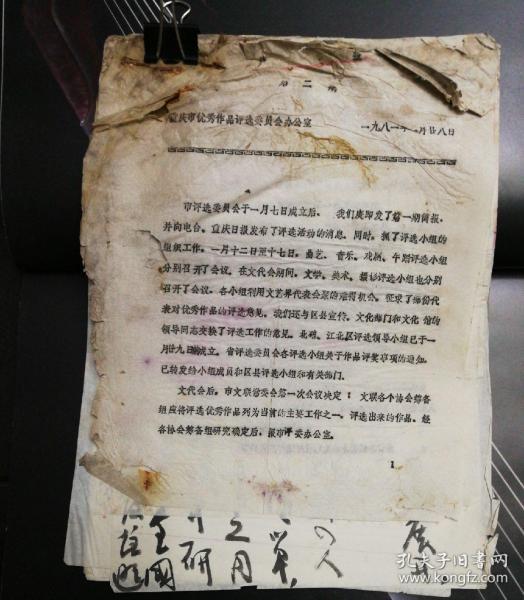 第二期
重庆市优秀作品评选委员会办公室
一九八一年一月廿八日
市评选委员会于一月七日成立后、我们庚即发了第一期简报、
并向电台、重庆日报发布了评选活动的消息。同时。抓了评选小组的
组织工作。一月十二日至十七日。曲艺、音乐、戏剧、午蹈评选小组
分别召开了会议。在文代会期间。文学、美术、摄影评选小组也分别
召开了会议。各小组利用文艺界代表会聚的难得机会。征求了部份代
表对优秀作品的评选意见。我们还与区县宣传、文化部门和文化馆的
领导同志交换了评选工作的意见。北碚、江北区评选领导小组已于一
月廿九日前成立。省评选委员会各评选小组关于作品评奖事项的通知。
已转发给小组成员和区县评选小组和有关部门。
文代会后。市文联常委会第一次会议决定：文联各个协会筹备
组应将评选优秀作品列为当前的主要工作之一。评选出来的作品、经
各协会筹备组研究确定后、报市评委办公室。
1
全国
研
之用
人
孔夫子旧书网
kongfz.com